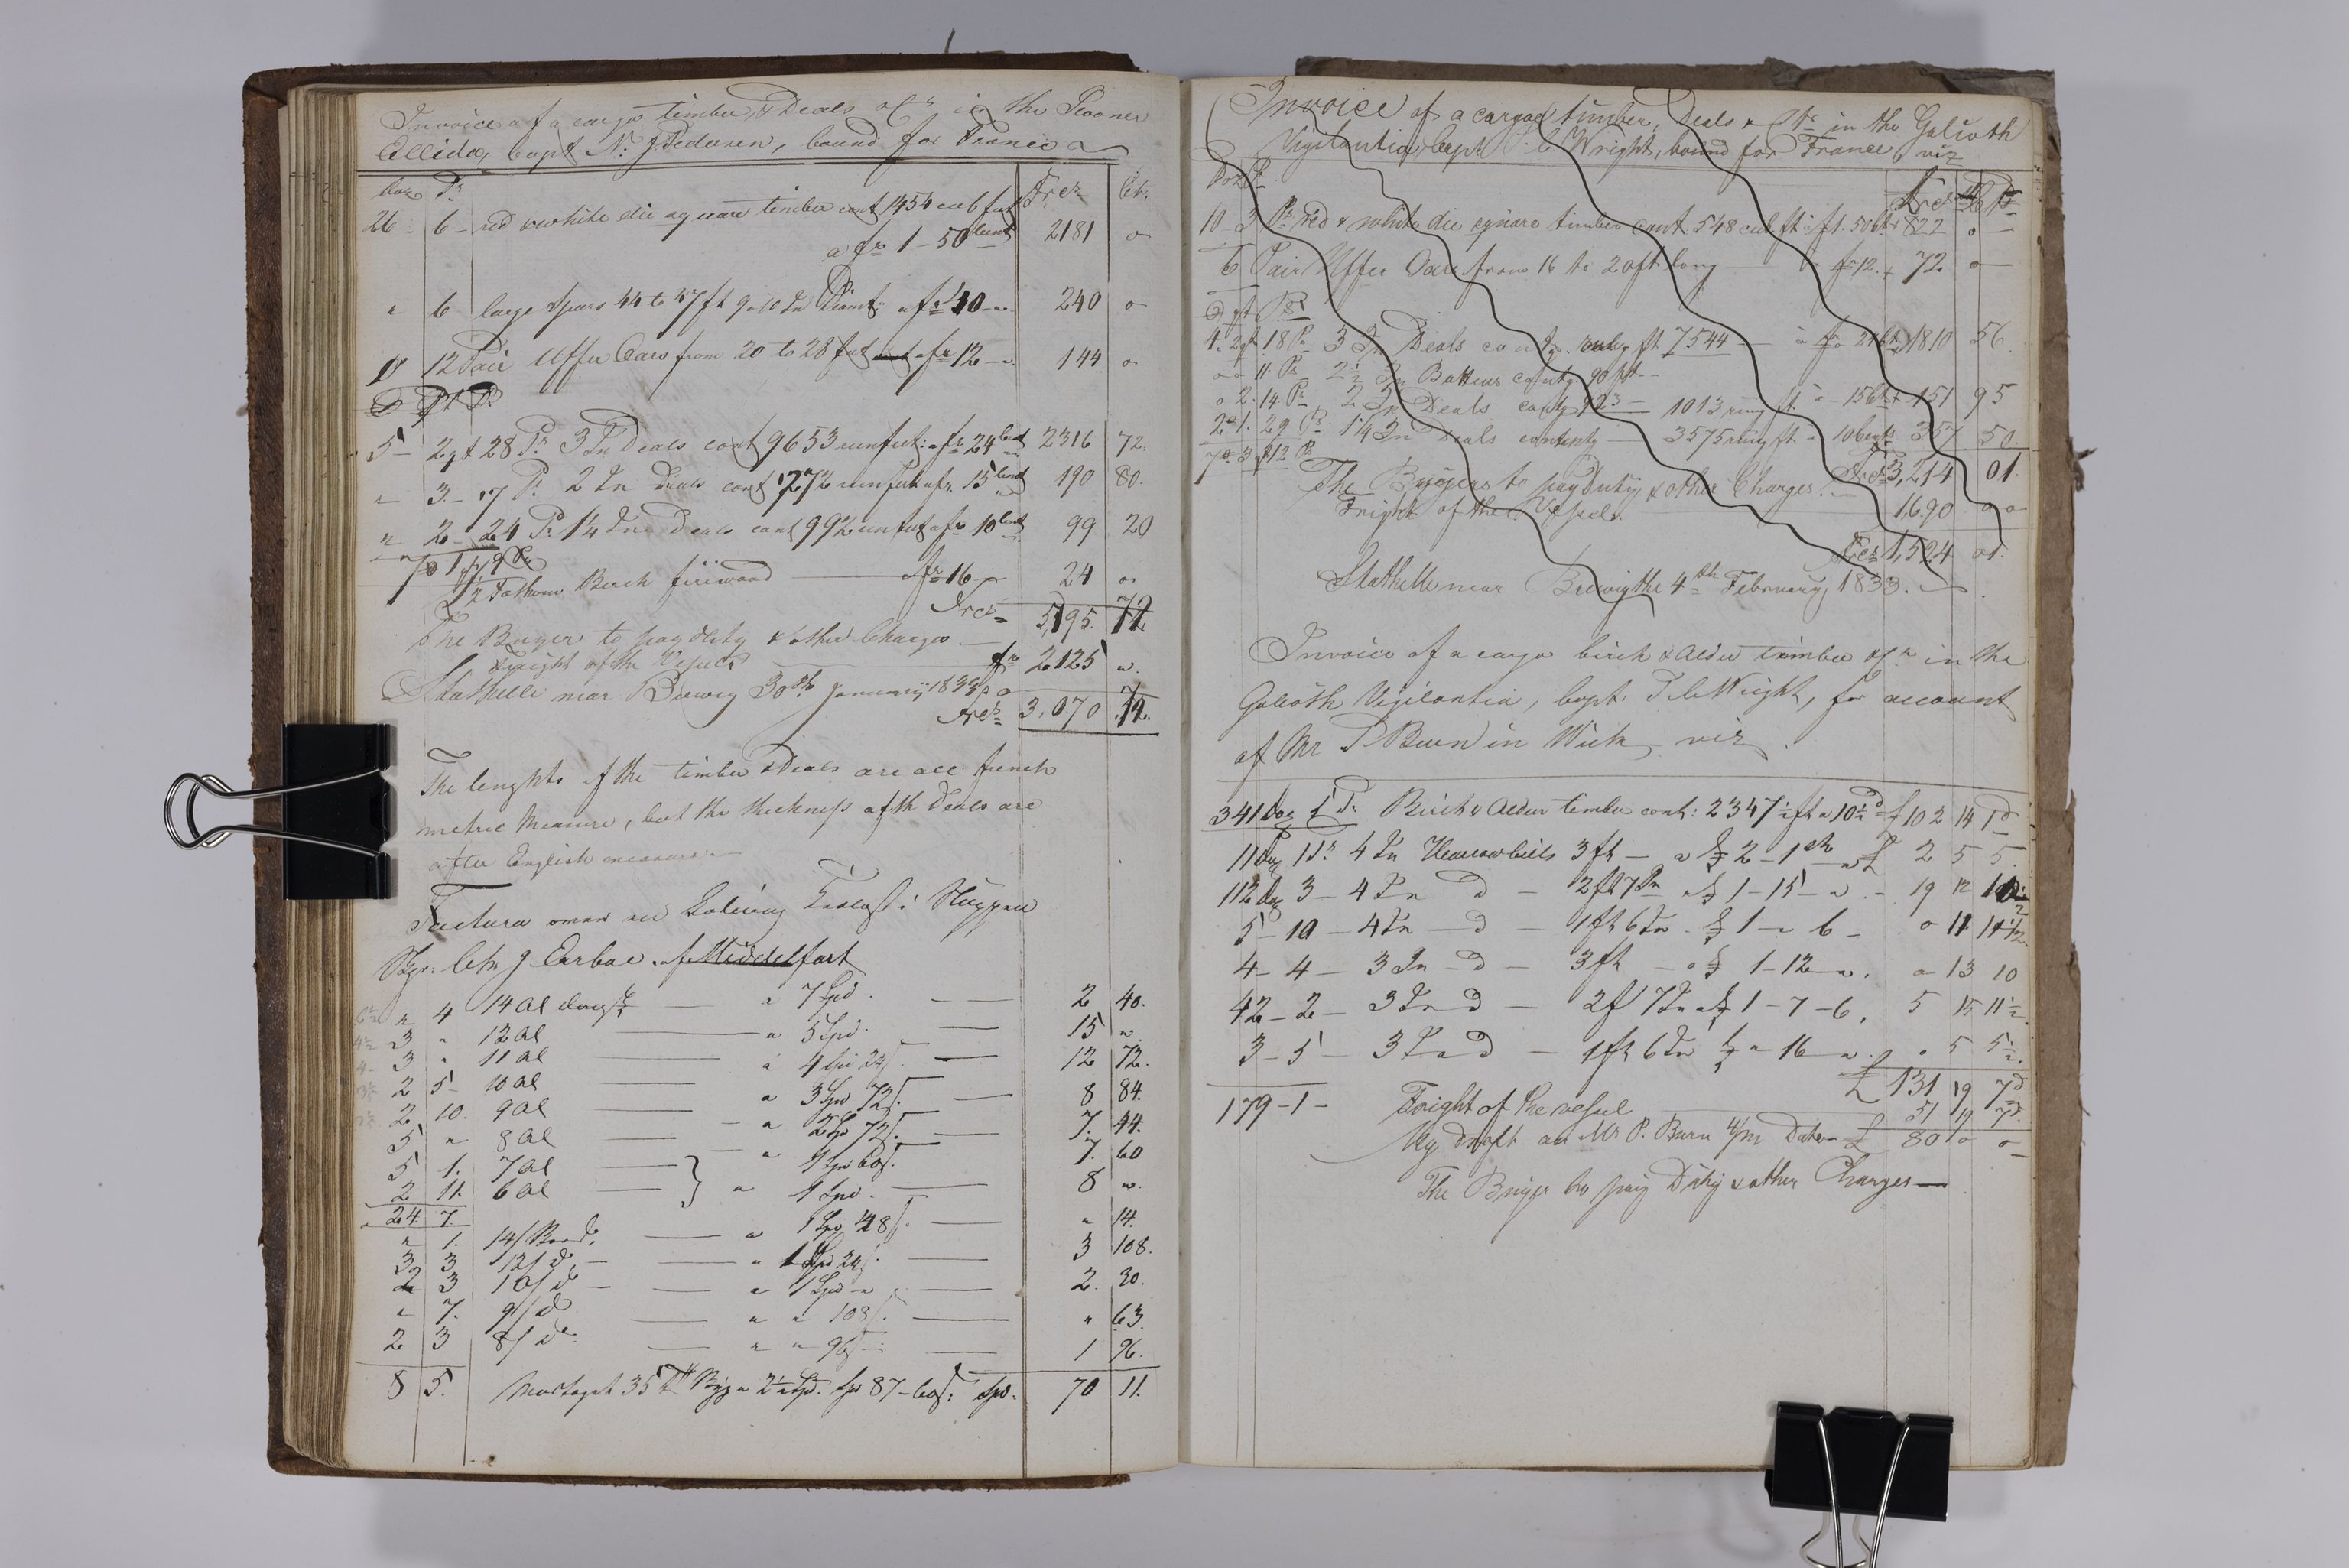 Invoice of a cargo timber, & Deals &c in the Scooner
Ellida, Capt N: J Pedersen, bound for France
Doz Ps
Frcs Cts.
26 - 6 - red & white die square timber cont 1454 cub feet
a fr 1-50 cent 2181 o
" 6 large Spars 44 to 47 ft 9 a 10 In Diamt: a fr 40 - " 240 o
12 Pair Uffer Oars from 20 to 28 feet a fr 12 - " 144 o
5 - 2 qt 28 Ps 3 In Deals cont 9653 run feet: a fr 24 cent 2316 72.
" 3 - 17 P. 2 In Deals cont 1272 run feet a fr. 15 cent 190 80.
" 2 - 24 Ps 1¼ In Deals cont 992 run feet a fr 10 cent 99 20
1½ Fathom Birch fiirwood a fr 16 24 "
Frcs 5,195. 72.
The Buyer to pay duty & other Charges
Freight of the Vessel fr 2125 ".
Stathelle near Brewig 30th January 1833
Frcs 3,070 72.
The lenghts of the timber & Deals are all french
metric Measure, but the thickness of the Deals are
after English measure.
Factura over en Ladning Trælast i Skuppen
Chr J Earboe. af Middelfart
" 4 14 Al a 7 Spd. 2 40.
3 " 12 Al a 5 Spd. 15 ".
3 " 11 Al a 4 Spd 24 s. 12 72.
2 5 - 10 Al a 3 Spd 72 s. 8 84.
2 10. 9 Al a 2 Sp 72 s. 7. 44.
5 " 8 Al a 1 Spd 60 s. 7. 60
5 1. 7 Al
2 11. 6 Al } a 1 Spd. 8 ".
24. 7.
" 1. 14 f Bord. a 1 Spd 48 s. " 14.
3 3 12 f do a 1 Spd 24 s. 3 108.
2 3 10 f do a 1 Spd " 2. 30.
" 7. 9 f do a " 108 s. " 63.
2 3 8 f do " " 96 s 1 96.
8 5. 70 11.
Invoice of a cargo timber, Deals & &c in the Galioth
Vigilantia, Capt T. C Wright, bound for France, viz
Doz P
Frcs Cts
10 - 3 Ps red & white die square timber cont. 548 cub ft a f 1. 50 ct 822 o
6 Pair Uffer Oars from 16 to 20 ft long a fr 12. 72. o
4. 2 qt. 18 Ps 3 In Deals contg. rung ft 7544 a fr 24 cts 1810 56.
" " 11 Ps 2½ In Battens contg. 90 ft
" 2. 14 Ps 2 In Deals contg 923 - 1013 rung ft. a 15 cts 151 95
2 " 1. 29 Ps 1¼ In Deals contentg 3575 rung ft a 10 cents 357 50.
7 " 3 qt 12 Ps
Frcs 3,214 01.
The Buyers to pay Duty & other Charges.
Fright of the Vessel. 1690 " "
Frcs 1,524 01.
Stathelle near Brewig the 4th February, 1833.
Invoice of a cargo birch & Alder timber &c in the
Galioth Vigilantia, Capt: T C Wright, for account
of Mr P Burn in Wick, viz
341 Doz 5 Ps Birch & Alder timber cont: 2347½ ft a 10½ d £ 102 14 1 d
11 Doz 1 Ps 4 In Harrowbills 3 ft - a £ 2 - 1 sh £ 2 5 5.
112 Doz 3 - 4 In D - 2 ft 7 In a £ 1 - 15 - " - 19 12
5 - 10 - 4 In - D - 1 ft 6 In £ 1 - " 6 - o 11 11½
4 - 4 - 3 In - D - 3 ft - a £ 1 - 12 - ". o - 13 10
42 - 2 - 3 In D - 2 f 7 In a £ 1 - 7 - 6. 5 15 11½
3 - 5 - 3 In D - 1 ft 6 In £ " 16 - ". " 5 5½
£ 131 19 7 d
179 - 1 - Fright of the vessel 51 19 7 d
My draft on Mr P. Burn 4/m Date £ 80 o o
The Buyer to pay Duty & other Charges